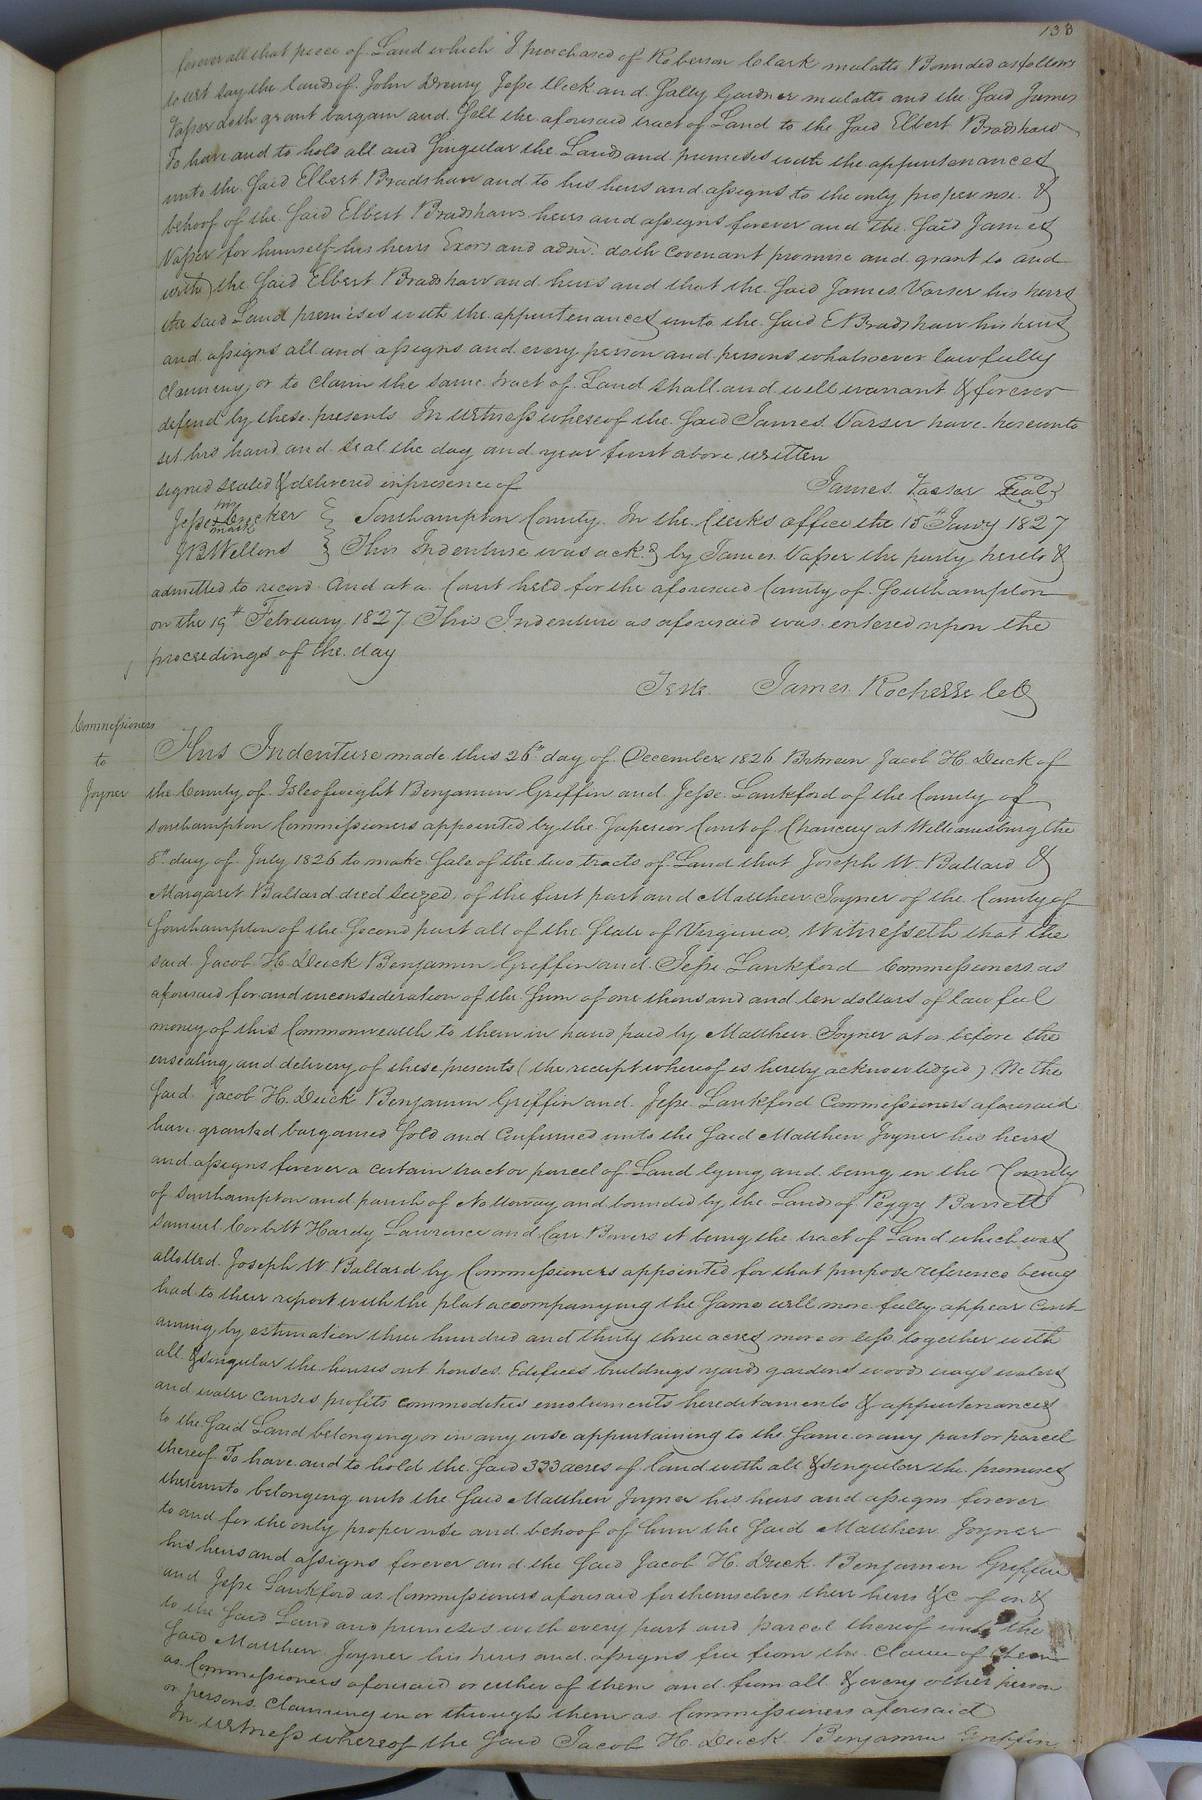 133
forever all that piece of Land which I purchased of Roberson Clark mulatto Bounded as follows
to wit say the lands of John Drewry Jesse Deck and Sally Gardner mulatto and the said James
Vasser doth grant bargain and Sell the aforesaid tract of Land to the Said Elbert Bradshaw
To have and to hold all and Singular the Land and premises with the appurtenances
unto the Said Elbert Bradshaw and to his heirs and assigns to the only proper use &
behoof of the Said Elbert Bradshaws heirs and assigns forever and the Said James
Vasser for himself his heirs Exors and adm. doth covenant promise and grant to and
with the Said Elbert Bradshaw and heirs and that the Said James Vasser his heirs
the said Land premises with the appurtenances unto the Said E Bradshaw his heirs
and assigns all and assigns and every person and persons whatsoever lawfully
claiming or to claim the same tract of Land shall and will warrant & forever
defend by these presents In witness whereof the Said James Vasser have hereunto
set his hand and seal the day and year first above written
signed sealed & delivered in presence of James Vasser Seal
Jesse his mark Decker Southampton County. In the Clerks office the 15th Jany 1827
J B Wellons This Indenture was ackd by James Vasser the party hereto &
admitted to record And at a Court held for the aforesaid County of Southampton
on the 19th February 1827 This Indenture as aforesaid was entered upon the
proceedings of the day
Teste James Rochelle Clk
Commissioners
to
Joyner
This Indenture made this 26th day of December 1826 Between Jacob H. Duck of
the County of Isle of weight Benjamin Griffin and Jesse Lankford of the County of
Southampton Commissioners appointed by the Superior Court of Chancery at Williamsburg the
8th day of July 1826 to make Sale of the two tracts of Land that Joseph W. Ballard &
Margaret Ballard died Seized, of the first part and Matthew Joyner of the County of
Southampton of the Second part all of the State of Virginia, Witnesseth that the
said Jacob H. Duck Benjamin Griffin and Jesse Lankford Commissioners as
aforesaid for and in consideration of the Sum of one thousand and ten dollars of lawful
money of this Commonwealth to them in hand paid by Matthew Joyner at or before the
ensealing and delivery of these presents (the receipt whereof is hereby acknowledged) We the
Said Jacob H. Duck Benjamin Griffin and Jesse Lankford Commissioners aforesaid
have granted bargained Sold and Confirmed unto the Said Matthew Joyner his heirs
and assigns forever a certain tract or parcel of Land lying and being in the County
of Southampton and parish of Nottoway and bounded by the Lands of Peggy Barrett
Samuel Corbitt Hardy Lawrence and Carr Bowers it being the tract of Land which was
allotted Joseph W Ballard by Commissioners appointed for that purpose reference being
had to their report with the plat accompanying the Same will more fully appear Cont-
aining by estimation three hundred and thirty three acres more or less together with
all & singular the houses out houses Edifices buildings yards gardens woods ways waters
and water courses profits commodities emoluments hereditaments & appurtenances
to the Said Land belonging or in any wise appurtaining to the Same or any part or parcel
thereof To have and to hold the Said 333 acres of land with all & singular the premises
thereunto belonging unto the Said Matthew Joyner his heirs and assigns forever
to and for the only proper use and behoof of him the Said Matthew Joyner
his heirs and assigns forever and the Said Jacob H. Duck Benjamin Griffin
and Jesse Lankford as Commissioners aforesaid for themselves their heirs &c of in &
to the Said Land and premises with every part and parcel thereof unto the
Said Matthew Joyner his heirs and assigns free from the claim of them
as Commissioners aforesaid or either of them and from all & every other person
or persons Claiming in or through them as Commissioners aforesaid
In witness whereof the Said Jacob H. Duck Benjamin Griffin